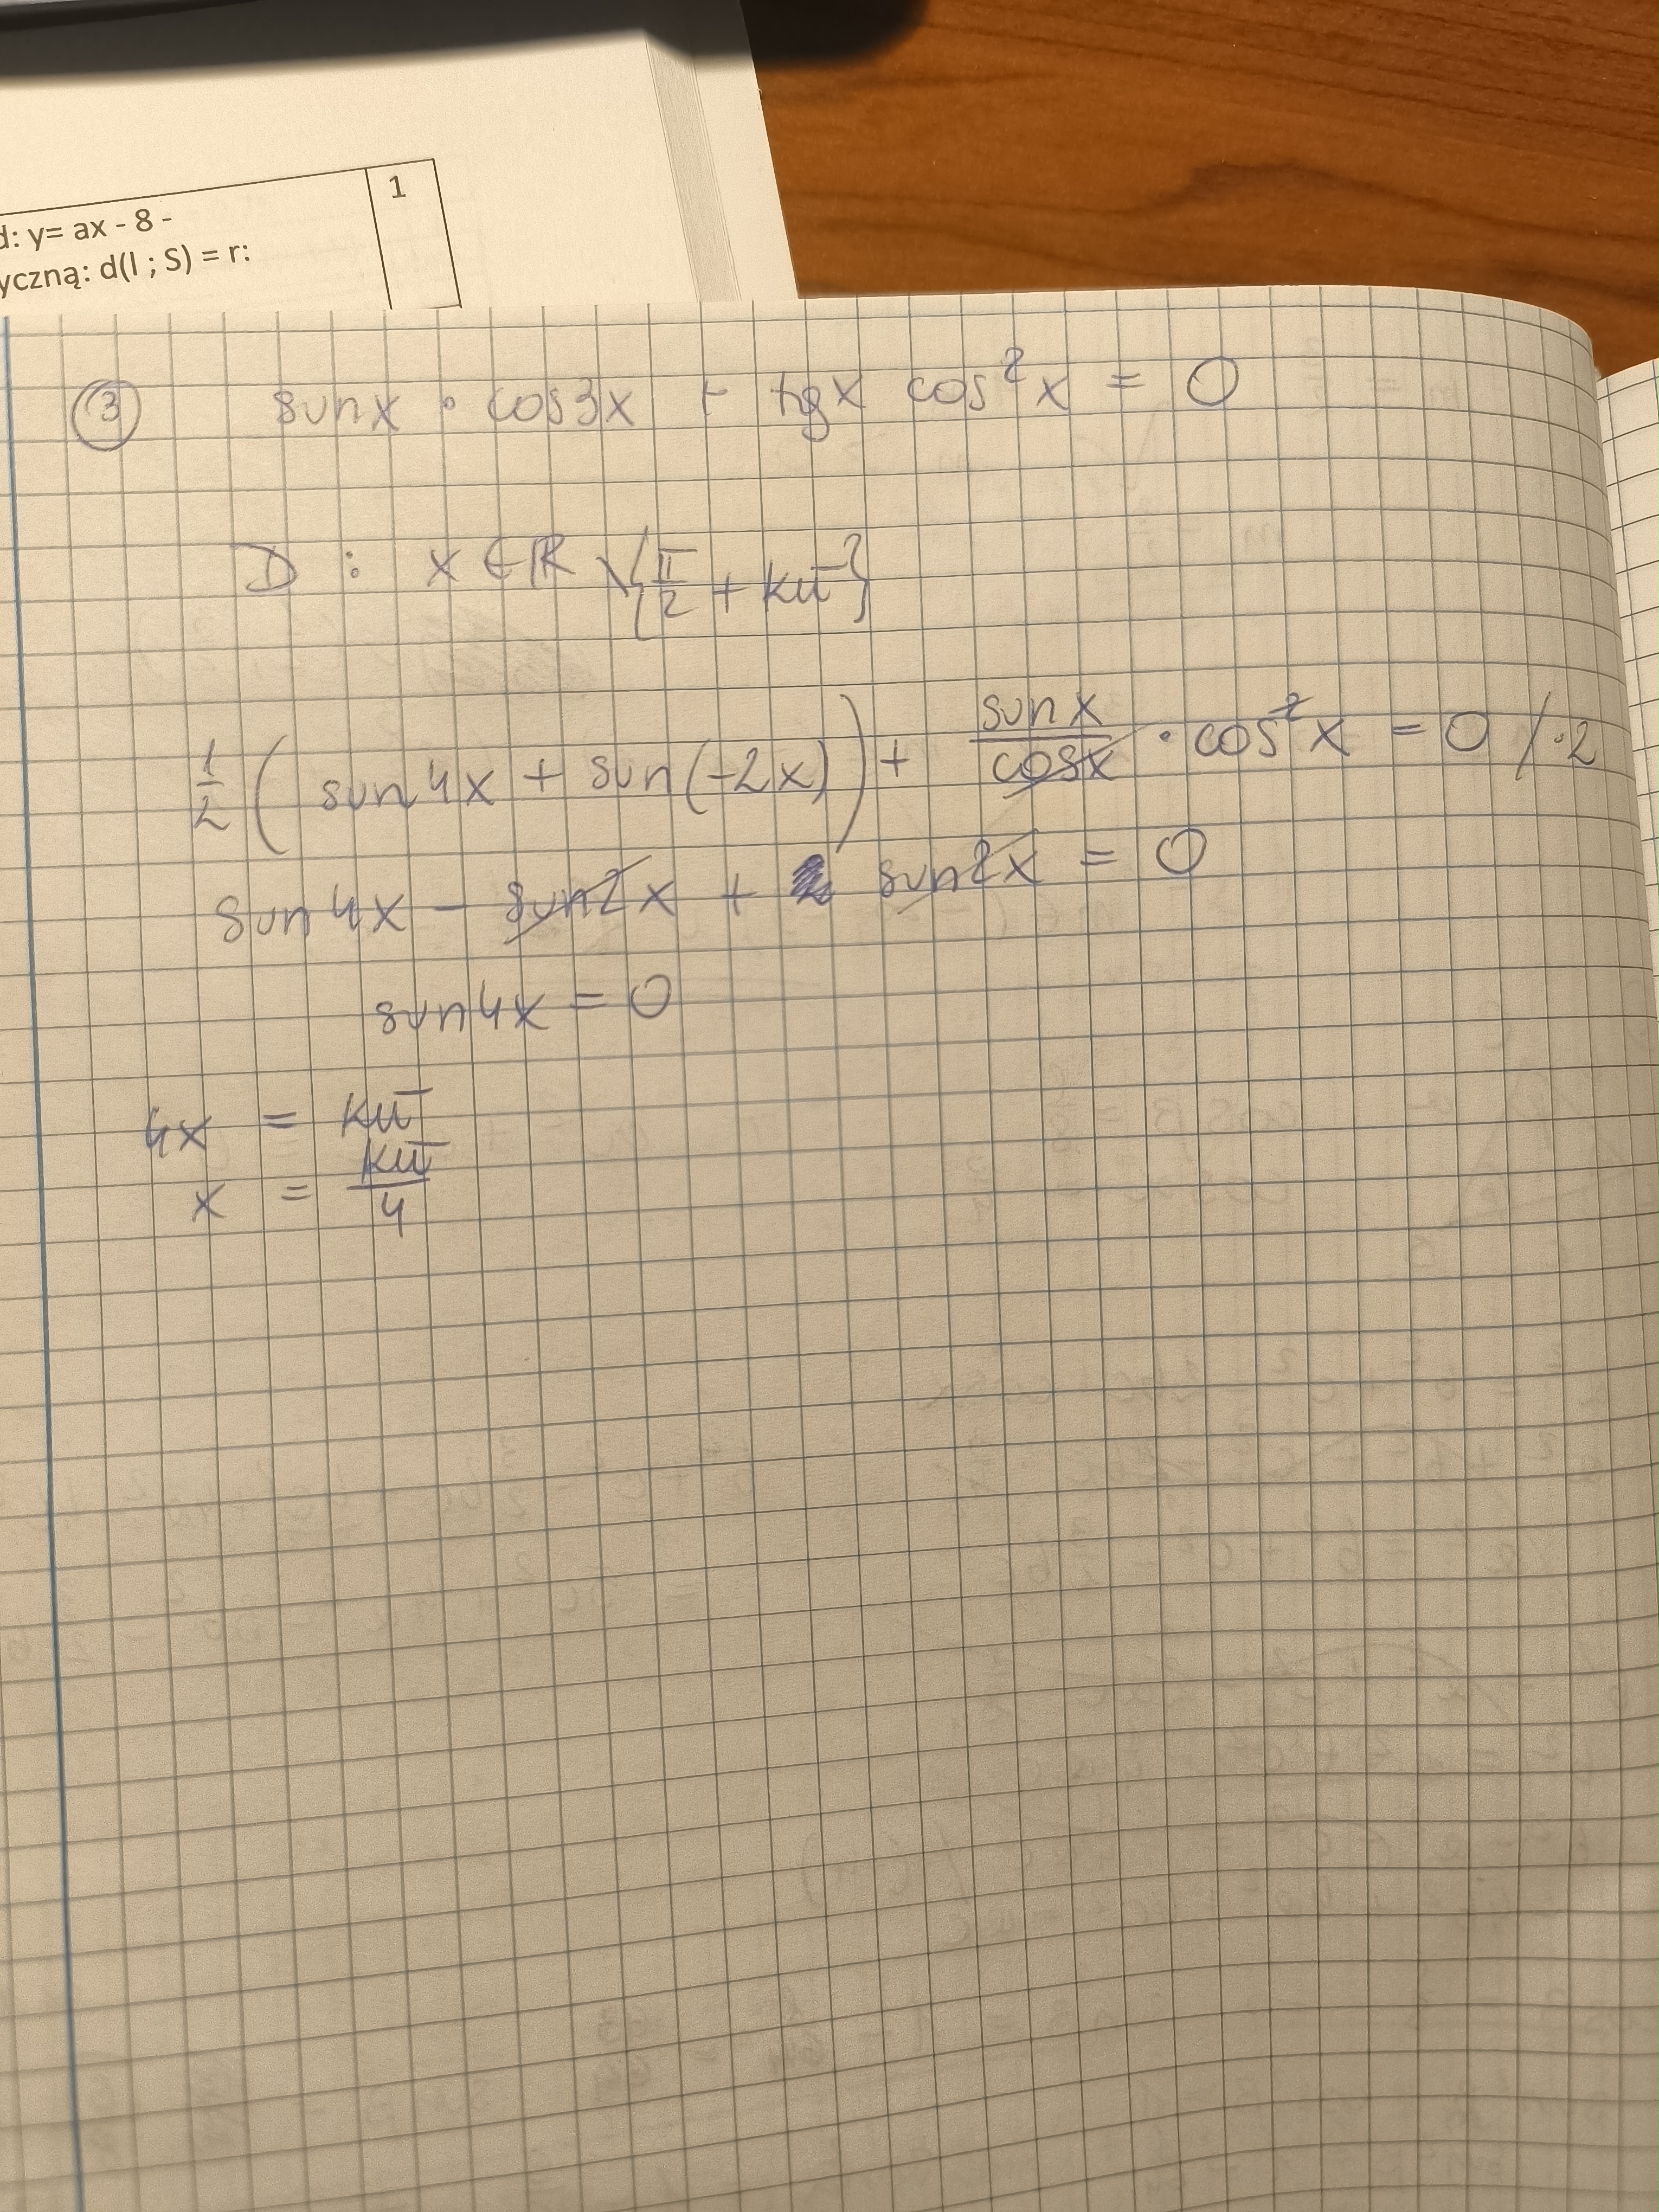 1
d: y= ax - 8 -
yczną: d(l ; S) = r:
③ sinx · cos3x + tgx cos²x = 0
D : x ∈ ℝ \ {π/2 + kπ}
1/2 ( sin4x + sin(-2x) ) + sinx/cosx · cos²x = 0 / ·2
sin4x - sin2x + sin2x = 0
sin4x = 0
4x = kπ
x = kπ/4